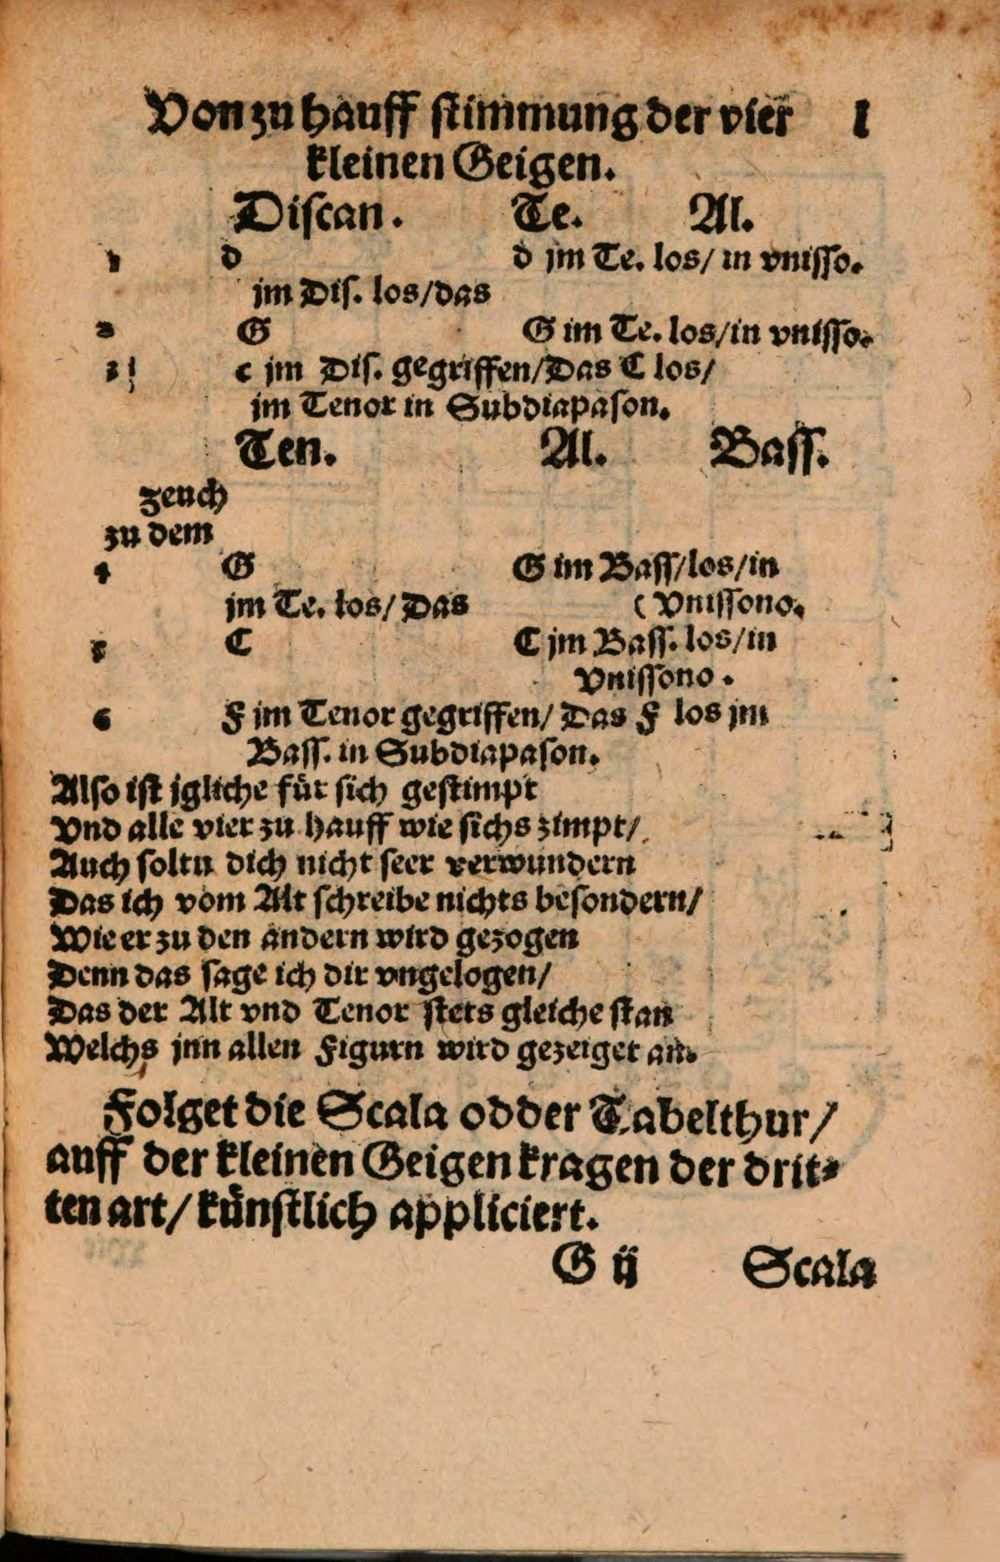 Von zu hauff ſtimmung der vier l
kleinen Geigen.
Diſcan. Te. Al.
1 d d jm Te. los/ in vniſſo.
jm Diſ. los/das
2 G G im Te. los/in vniſſo.
3 c jm Diſ. gegriffen/Das C los/
jm Tenor in Subdiapaſon.
Ten. Al. Baſſ.
zeuch
zu dem
4 G G im Baſſ/los/in
jm Te. los/ Das (Vniſſono.
5 C C jm Baſſ. los/in
Vniſſono.
6 F im Tenor gegriffen/ Das F los jm
Baſſ. in Subdiapaſon.
Alſo iſt jgliche fuͤr ſich geſtimpt
Vnd alle vier zu hauff wie ſichs zimpt/
Auch ſoltu dich nicht ſeer verwundern
Das ich vom Alt ſchreibe nichts beſondern/
Wie er zu den andern wird gezogen
Denn das ſage ich dir vngelogen/
Das der Alt vnd Tenor ſtets gleiche ſtan
Welchs jnn allen Figurn wird gezeiget an.
Folget die Scala odder Tabelthur/
auff der kleinen Geigen kragen der drit⸗
ten art/ kuͤnſtlich appliciert.
G ij Scala